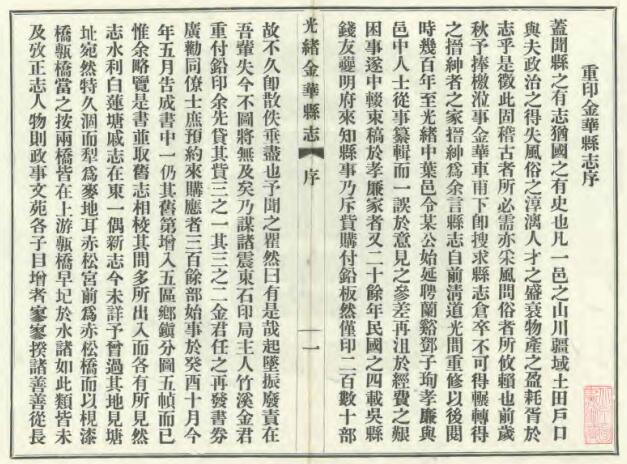 重印金華縣志序
蓋聞縣之有志猶國之有史也凡一邑之山川疆域土田戶口
與夫政治之得失風俗之淳漓人才之盛衰物產之盈耗胥於
志乎是徵此固稽古者所必需亦采風問俗者所攸賴也前歲
秋予捧檄涖事金華車甫下卽搜求縣志倉卒不可得輾轉得
之搢紳者之家搢紳爲余言縣志自前清道光間重修以後閱
時幾百年至光緒中葉邑令某公始延聘蘭谿鄧子珣孝廉與
邑中人士從事纂輯而一誤於意見之參差再沮於經費之艱
困事遂中輟束稿於孝廉家者又二十餘年民國之四載吳縣
錢友夔明府來知縣事乃斥貲購付鉛板然僅印二百數十部
光緒金華縣志
序
一
故不久卽散佚垂盡也予聞之瞿然曰有是哉起墜振廢責在
吾輩失今不圖將無及矣乃謀諸震東石印局主人竹溪金君
重付鉛印余先貸其貲三之一其三之二金君任之再發書券
廣勸同僚士庶預約來購應者三百餘部始事於癸酉十月今
年五月告成書中一仍其舊第增入五區鄉鎭分圖五幀而已
惟余略覽是書並取舊志相校其間多所出入而各有所見然
志水利白蓮塘戚志在東一偶新志今未詳予曾過其地見塘
址宛然特久涸而犁爲麥地耳赤松宮前爲赤松橋而以梘漆
橋甎橋當之按兩橋皆在上游甎橋早圮於水諸如此類皆未
及攷正志人物則政事文苑各子目增者寥寥揆諸善善從長